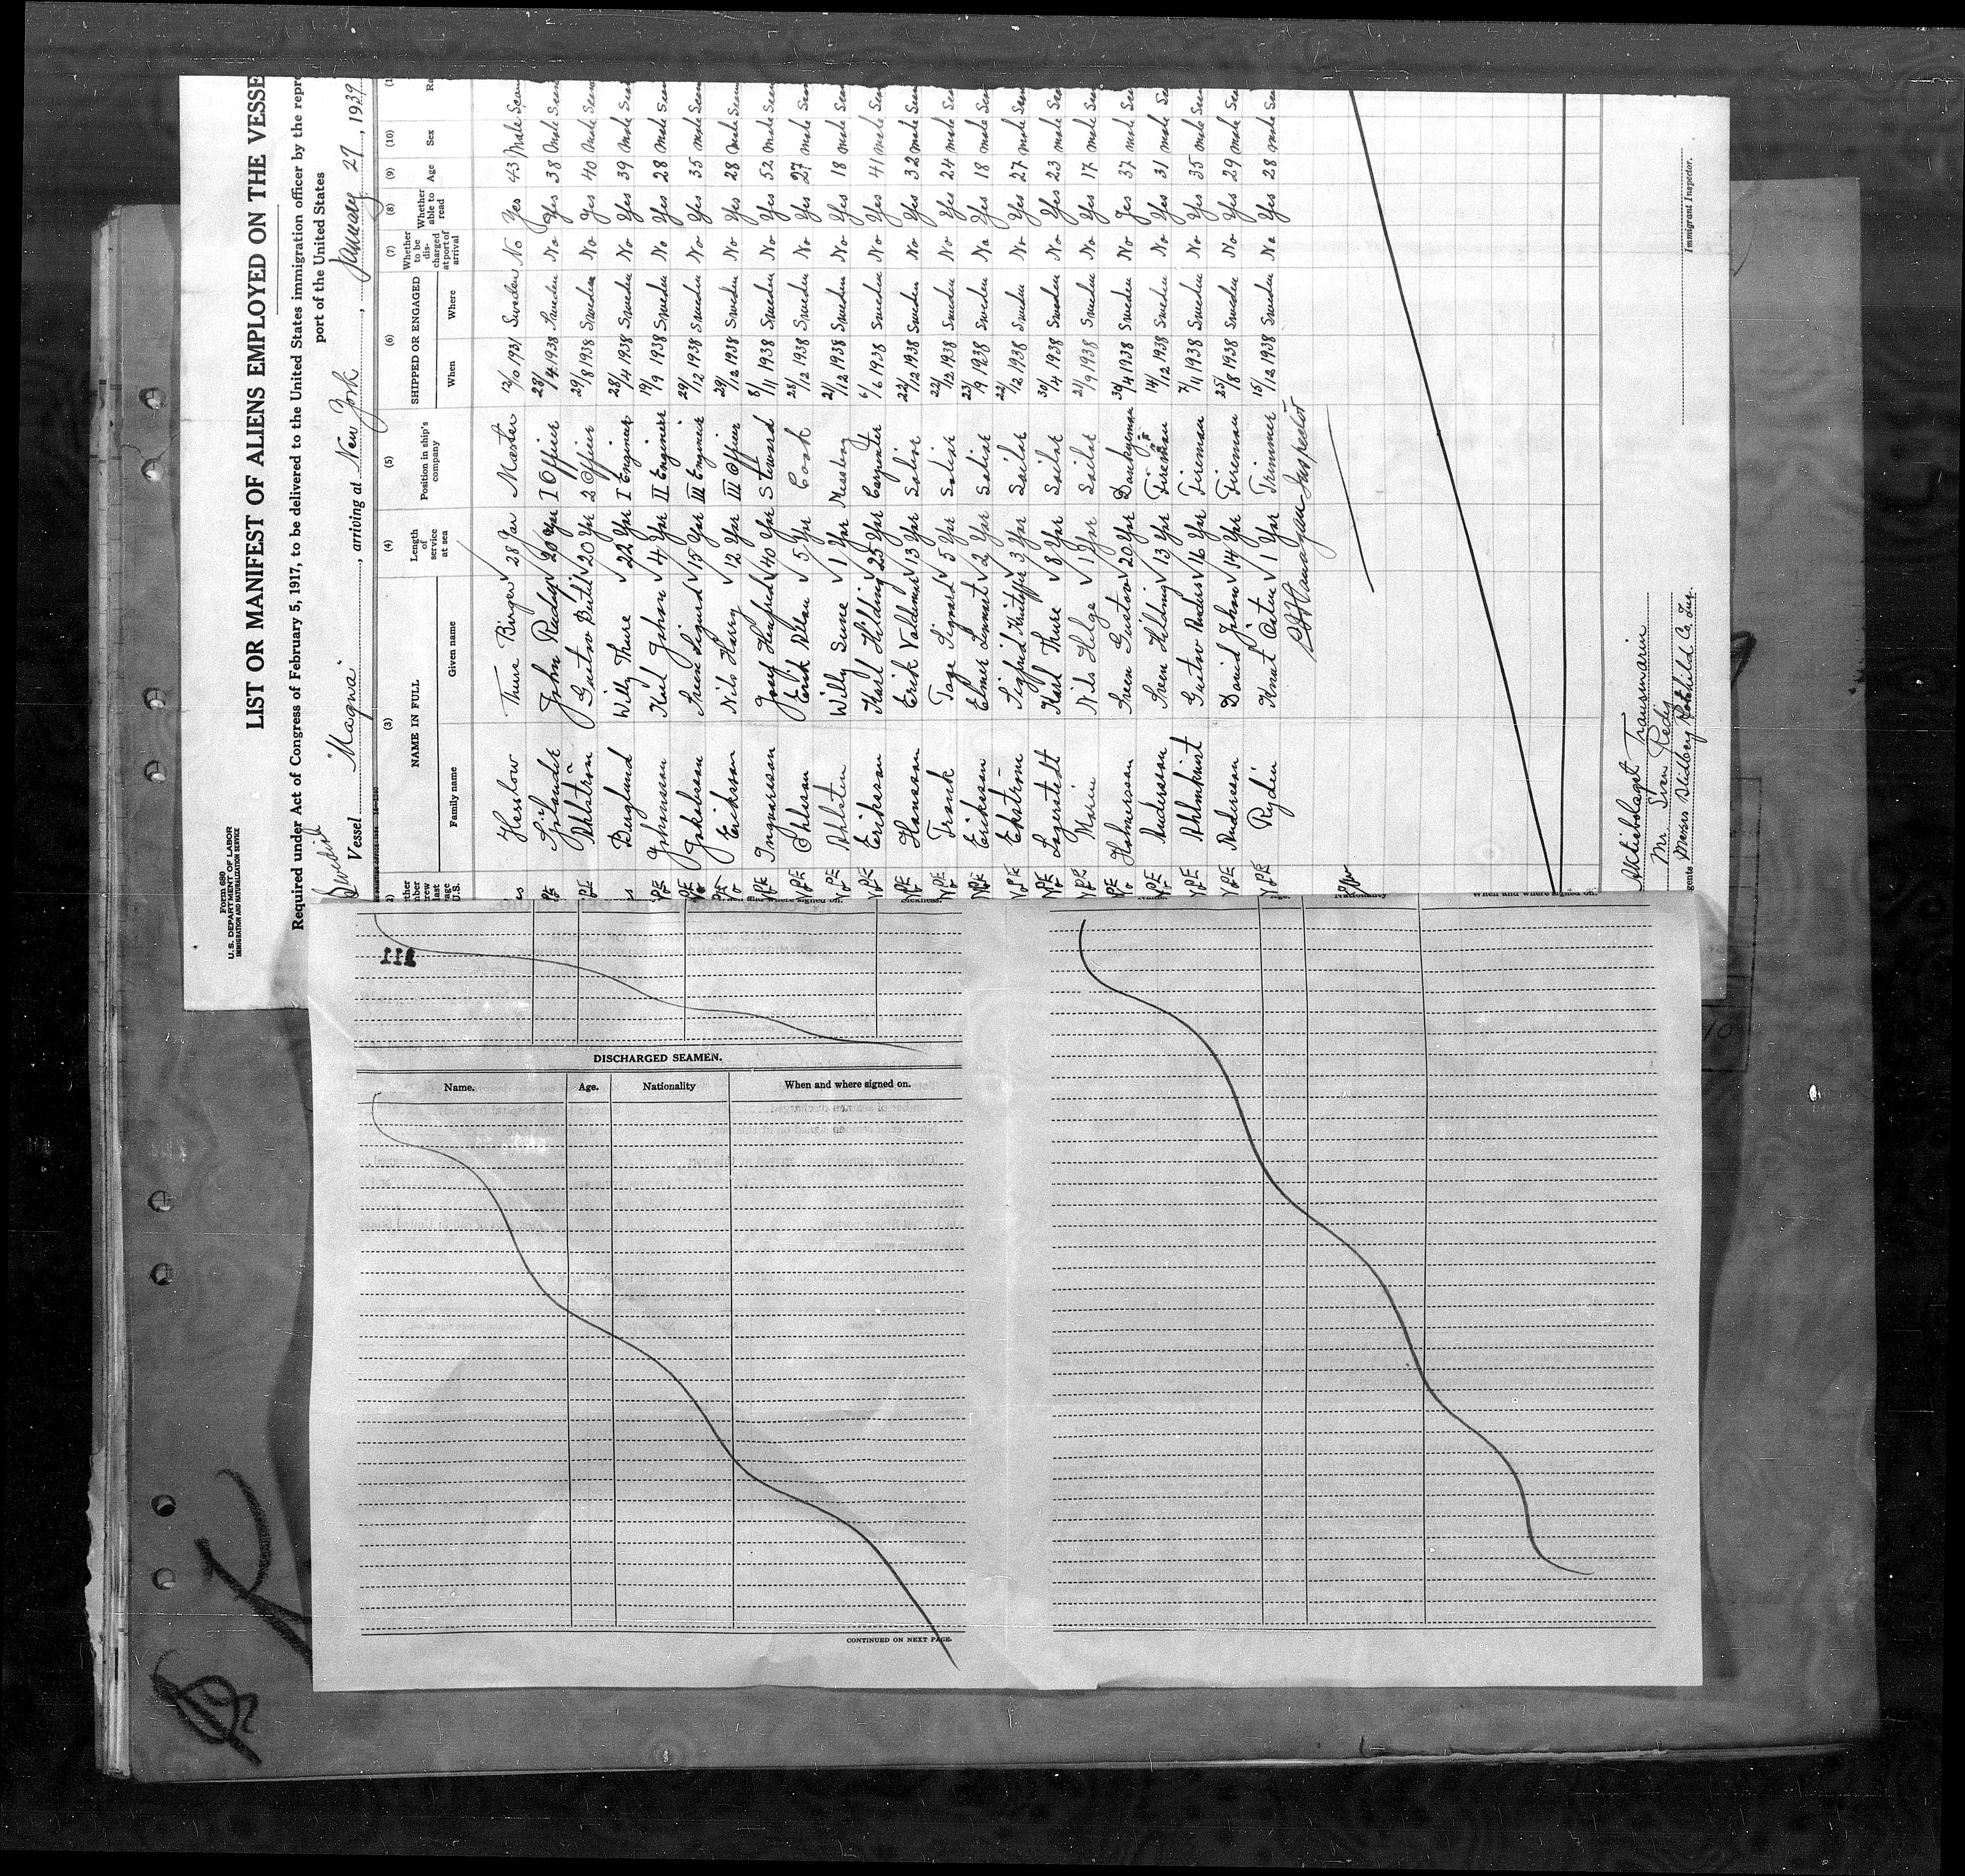 Form 680
U.S. DEPARTMENT OF LABOR
IMMIGRATION AND NATURALIZATION SERVICE
LIST OR MANIFEST OF ALIENS EMPLOYED ON THE VESSE
Required under Act of Congress of February 5, 1917, to be delivered to the United States immigration officer by the repr
port of the United States
Swedish
Vessel "Magna", arriving at New York, January 27, 1939
(3) (4) (5) (6) (7) (8) (9) (10)
NAME IN FULL Length of service at sea Position in ship's company SHIPPED OR ENGAGED Whether to be discharged at port of arrival Whether able to read Age Sex Ra
Family name Given name When Where
Herslow Thure Birger 28 Yar Master 12/10 1931 Sweden No Yes 43 Male Sean
John 20 Yar I Officer 28/4 1938 Sweden No Yes 38 Male Sean
Ahlström Gustav 20 Yar 2 Officer 29/8 1938 Sweden No Yes 40 Male Sean
Berglund Willy Thure 22 Yar I Engineer 28/4 1938 Sweden No Yes 39 Male Sean
Johansson Karl Johan 4 Yar II Engineer 19/9 1938 Sweden No Yes 28 Male Sean
Jakobsson Sven Sigurd 15 Yar III Engineer 29/12 1938 Sweden No Yes 35 Male Sean
Erikson Nils Harry 12 Yar III Officer 29/12 1938 Sweden No Yes 28 Male Sean
Ingvarsson Josef Henfrid 40 Yar Steward 8/11 1938 Sweden No Yes 52 Male Sean
Ohlsson Erik Allan 5 Yar Cook 28/12 1938 Sweden No Yes 27 Male Sean
Ahlsten Willy Sune 1 Yar Messboy 21/12 1938 Sweden No Yes 18 Male Sean
Eriksson Karl Hilding 25 Yar Carpenter 6/6 1938 Sweden No Yes 41 Male Sean
Hansson Erik Valdemar 13 Yar Sailor 22/12 1938 Sweden No Yes 32 Male Sean
Trank Tage Signard 5 Yar Sailor 22/12 1938 Sweden No Yes 24 Male Sean
Eriksson Elmer Lennart 2 Yar Sailor 23/9 1938 Sweden No Yes 18 Male Sean
Ekström Sigfrid 3 Yar Sailor 22/12 1938 Sweden No Yes 27 Male Sean
Lagerstedt Karl Thure 8 Yar Sailor 30/4 1938 Sweden No Yes 23 Male Sean
Malin Nils Helge 1 Yar Sailor 21/9 1938 Sweden No Yes 17 Male Sean
Holmersson Sven Gustav 20 Yar Donkeyman 30/4 1938 Sweden No Yes 37 Male Sean
Andersson Sven Hilding 13 Yar Fireman 14/12 1938 Sweden No Yes 31 Male Sean
Ahlmkvist Gustav Anders 16 Yar Fireman 7/11 1938 Sweden No Yes 35 Male Sean
Andersson David Johan 14 Yar Fireman 25/8 1938 Sweden No Yes 29 Male Sean
Rydén Knut 1 Yar Trimmer 15/12 1938 Sweden No Yes 28 Male Sean
Inspector
Aktiebolaget Transmarin
Mr. Sven
gents Messrs
Immigrant Inspector.
111
DISCHARGED SEAMEN.
Name. Age. Nationality When and where signed on.
CONTINUED ON NEXT PAGE.
Name. Age. Nationality When and where signed on.